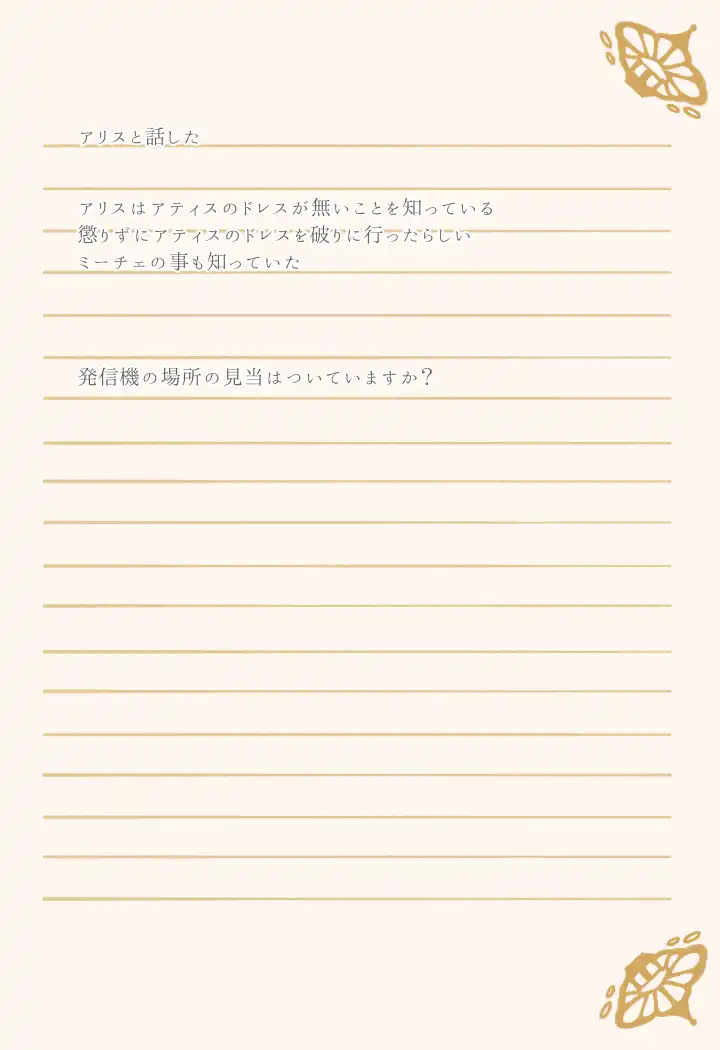 アリスと話した
アリスはアティスのドレスが無いことを知っている
懲りずにアティスのドレスを破りに行ったらしい
ミーチェの事も知っていた
発信機の場所の見当はついていますか？